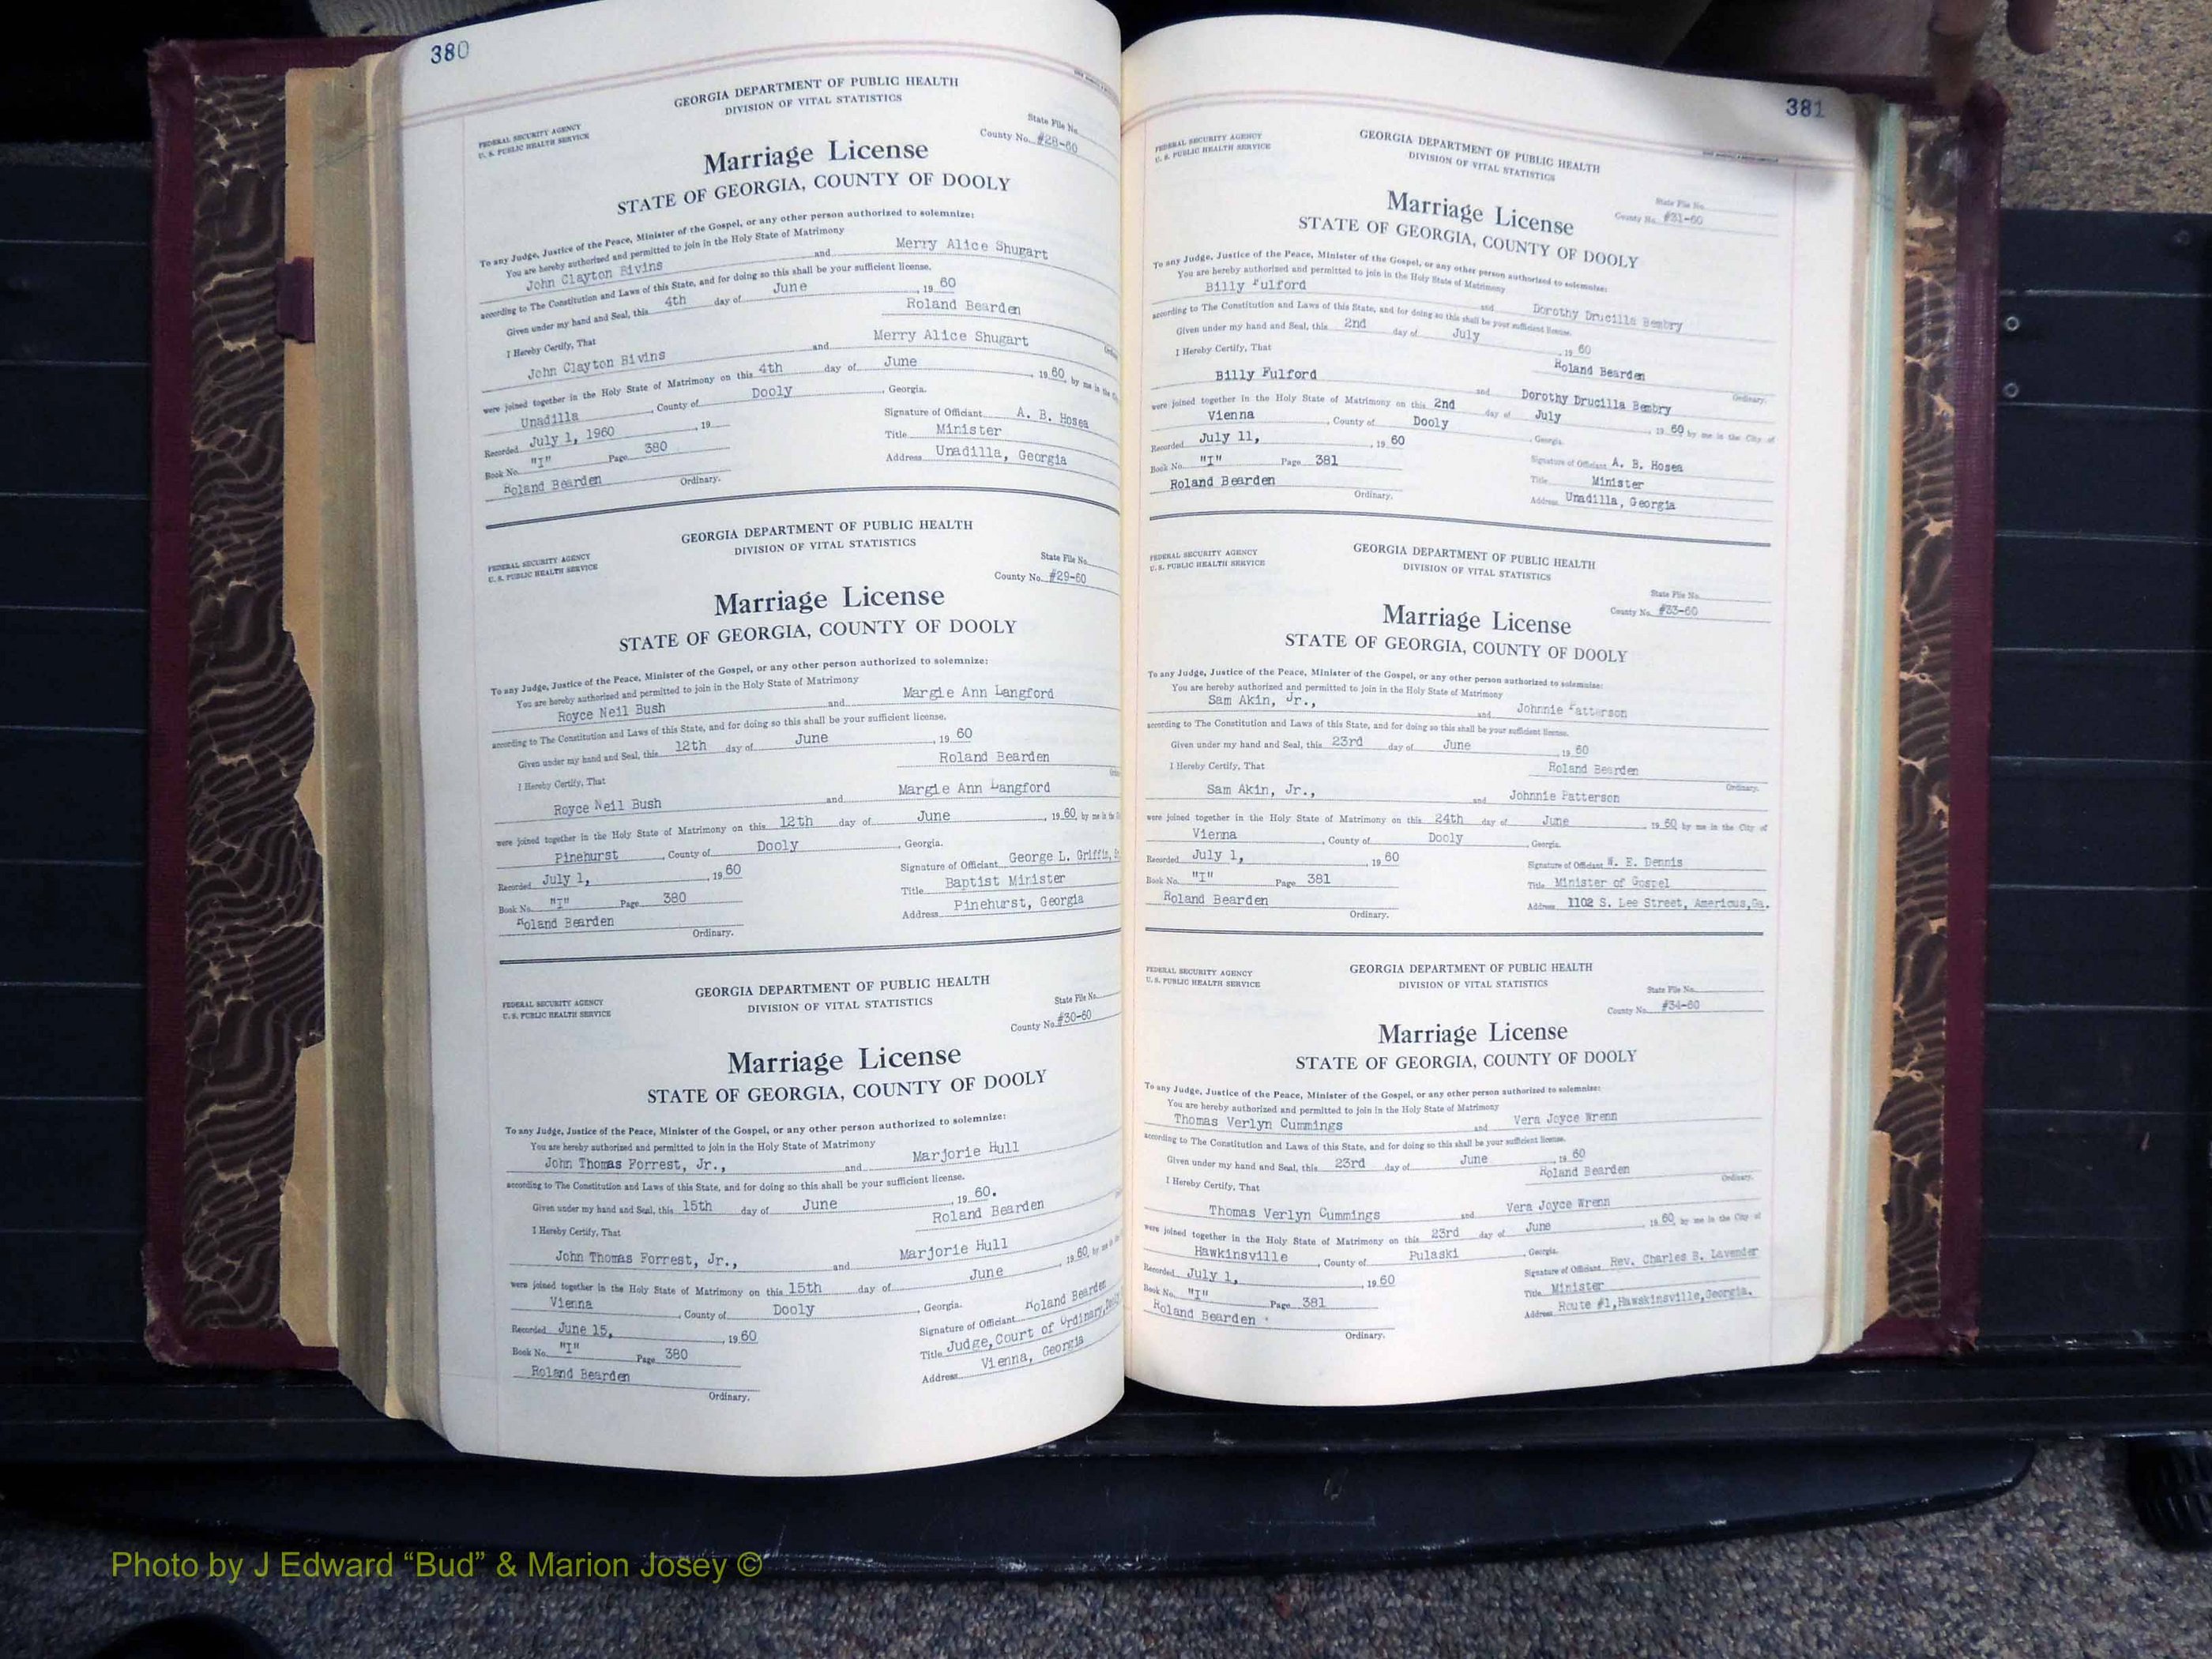 380
GEORGIA DEPARTMENT OF PUBLIC HEALTH
DIVISION OF VITAL STATISTICS
FEDERAL SECURITY AGENCY
U. S. PUBLIC HEALTH SERVICE
State File No.
County No. #28-60
Marriage License
STATE OF GEORGIA, COUNTY OF DOOLY
To any Judge, Justice of the Peace, Minister of the Gospel, or any other person authorized to solemnize:
You are hereby authorized and permitted to join in the Holy State of Matrimony
John Clayton Bivins and Merry Alice Shugart
according to The Constitution and Laws of this State, and for doing so this shall be your sufficient license.
Given under my hand and Seal, this 4th day of June, 19 60
Roland Bearden
I Hereby Certify, That
John Clayton Bivins and Merry Alice Shugart
were joined together in the Holy State of Matrimony on this 4th day of June, 19 60, by me in the
Unadilla, County of Dooly, Georgia.
Recorded July 1, 1960, 19
Signature of Officiant A. B. Hosea
Book No. "I" Page 380
Title Minister
Roland Bearden
Address Unadilla, Georgia
Ordinary.
GEORGIA DEPARTMENT OF PUBLIC HEALTH
DIVISION OF VITAL STATISTICS
FEDERAL SECURITY AGENCY
U. S. PUBLIC HEALTH SERVICE
State File No.
County No. #29-60
Marriage License
STATE OF GEORGIA, COUNTY OF DOOLY
To any Judge, Justice of the Peace, Minister of the Gospel, or any other person authorized to solemnize:
You are hereby authorized and permitted to join in the Holy State of Matrimony
Royce Neil Bush and Margie Ann Langford
according to The Constitution and Laws of this State, and for doing so this shall be your sufficient license.
Given under my hand and Seal, this 12th day of June, 19 60
Roland Bearden
I Hereby Certify, That
Royce Neil Bush and Margie Ann Langford
were joined together in the Holy State of Matrimony on this 12th day of June, 19 60, by me in the
Pinehurst, County of Dooly, Georgia.
Recorded July 1, 19 60
Signature of Officiant George L. Griffin,
Book No. "I" Page 380
Title Baptist Minister
Roland Bearden
Address Pinehurst, Georgia
Ordinary.
GEORGIA DEPARTMENT OF PUBLIC HEALTH
DIVISION OF VITAL STATISTICS
FEDERAL SECURITY AGENCY
U. S. PUBLIC HEALTH SERVICE
State File No.
County No. #30-60
Marriage License
STATE OF GEORGIA, COUNTY OF DOOLY
To any Judge, Justice of the Peace, Minister of the Gospel, or any other person authorized to solemnize:
You are hereby authorized and permitted to join in the Holy State of Matrimony
John Thomas Forrest, Jr., and Marjorie Hull
according to The Constitution and Laws of this State, and for doing so this shall be your sufficient license.
Given under my hand and Seal, this 15th day of June, 19 60.
Roland Bearden
I Hereby Certify, That
John Thomas Forrest, Jr., and Marjorie Hull
were joined together in the Holy State of Matrimony on this 15th day of June, 19 60, by me in the
Vienna, County of Dooly, Georgia.
Recorded June 15, 19 60
Signature of Officiant Roland Bearden
Book No. "I" Page 380
Title Judge, Court of Ordinary,
Roland Bearden
Address Vienna, Georgia
Ordinary.
381
FEDERAL SECURITY AGENCY
U. S. PUBLIC HEALTH SERVICE
GEORGIA DEPARTMENT OF PUBLIC HEALTH
DIVISION OF VITAL STATISTICS
State File No.
County No. #31-60
Marriage License
STATE OF GEORGIA, COUNTY OF DOOLY
To any Judge, Justice of the Peace, Minister of the Gospel, or any other person authorized to solemnize:
You are hereby authorized and permitted to join in the Holy State of Matrimony
Billy Fulford and Dorothy Drucilla Bembry
according to The Constitution and Laws of this State, and for doing so this shall be your sufficient license.
Given under my hand and Seal, this 2nd day of July, 19 60
Roland Bearden
I Hereby Certify, That
Ordinary.
Billy Fulford and Dorothy Drucilla Bembry
were joined together in the Holy State of Matrimony on this 2nd day of July, 19 60 by me in the City of
Vienna, County of Dooly, Georgia.
Recorded July 11, 19 60
Signature of Officiant A. B. Hosea
Book No. "I" Page 381
Title Minister
Roland Bearden
Address Unadilla, Georgia
Ordinary.
FEDERAL SECURITY AGENCY
U. S. PUBLIC HEALTH SERVICE
GEORGIA DEPARTMENT OF PUBLIC HEALTH
DIVISION OF VITAL STATISTICS
State File No.
County No. #33-60
Marriage License
STATE OF GEORGIA, COUNTY OF DOOLY
To any Judge, Justice of the Peace, Minister of the Gospel, or any other person authorized to solemnize:
You are hereby authorized and permitted to join in the Holy State of Matrimony
Sam Akin, Jr., and Johnnie Patterson
according to The Constitution and Laws of this State, and for doing so this shall be your sufficient license.
Given under my hand and Seal, this 23rd day of June, 19 60
Roland Bearden
I Hereby Certify, That
Ordinary.
Sam Akin, Jr., and Johnnie Patterson
were joined together in the Holy State of Matrimony on this 24th day of June, 19 60, by me in the City of
Vienna, County of Dooly, Georgia.
Recorded July 1, 19 60
Signature of Officiant W. E. Dennis
Book No. "I" Page 381
Title Minister of Gospel
Roland Bearden
Address 1102 S. Lee Street, Americus,Ga.
Ordinary.
FEDERAL SECURITY AGENCY
U. S. PUBLIC HEALTH SERVICE
GEORGIA DEPARTMENT OF PUBLIC HEALTH
DIVISION OF VITAL STATISTICS
State File No.
County No. #34-60
Marriage License
STATE OF GEORGIA, COUNTY OF DOOLY
To any Judge, Justice of the Peace, Minister of the Gospel, or any other person authorized to solemnize:
You are hereby authorized and permitted to join in the Holy State of Matrimony
Thomas Verlyn Cummings and Vera Joyce Wrenn
according to The Constitution and Laws of this State, and for doing so this shall be your sufficient license.
Given under my hand and Seal, this 23rd day of June, 19 60
Roland Bearden
I Hereby Certify, That
Ordinary.
Thomas Verlyn Cummings and Vera Joyce Wrenn
were joined together in the Holy State of Matrimony on this 23rd day of June, 19 60, by me in the City of
Hawkinsville, County of Pulaski, Georgia.
Recorded July 1, 19 60
Signature of Officiant Rev. Charles B. Lavender
Book No. "I" Page 381
Title Minister
Roland Bearden
Address Route #1,Hawskinsville,Georgia.
Ordinary.
Photo by J Edward “Bud” & Marion Josey ©